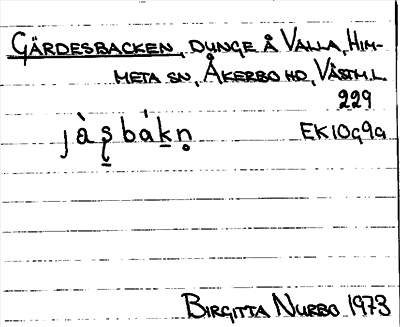 GÄRDESBACKEN, DUNGE Å VALLA, HIM-
META SN, ÅKERBO HD, VÄSTM.L.
229
jàs̱bákṇ EK10g9a
BIRGITTA NURBO 1973